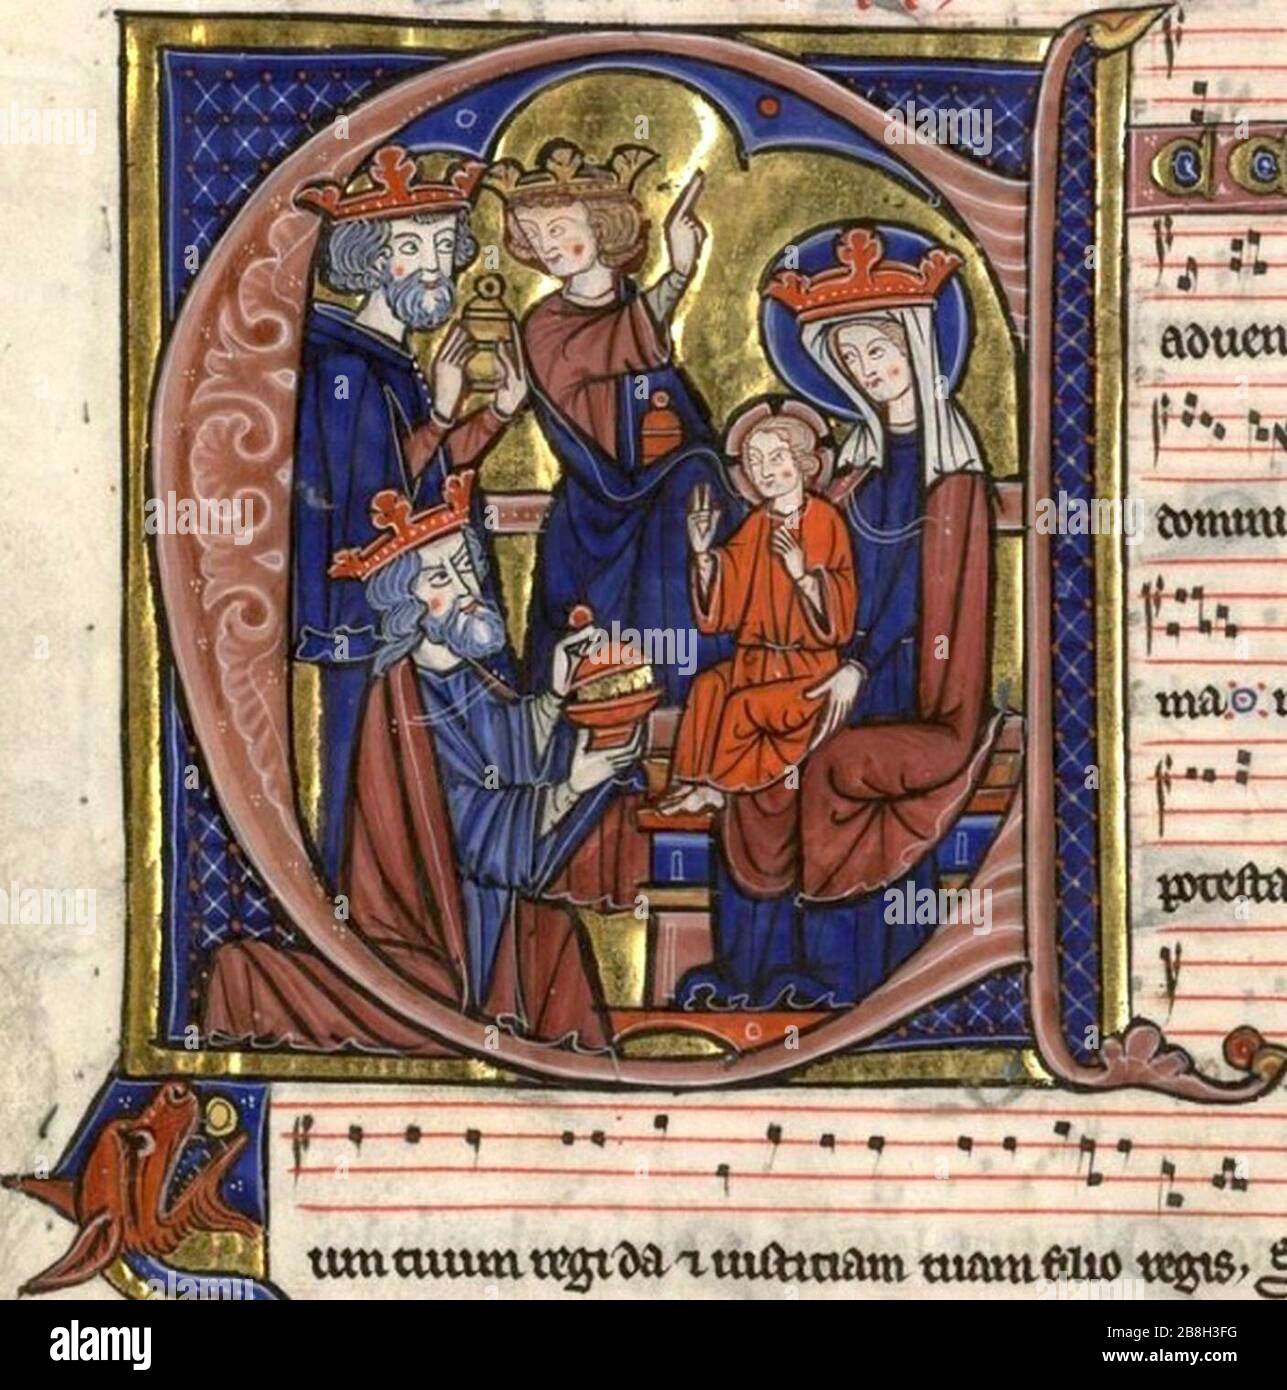 E
dc
aduen
domin
ma
potesta
um tuum regi da ⁊ iusticiam tuam filio regis,
a
alamy
alamy
Image ID: 2B8H3FG
www.alamy.com